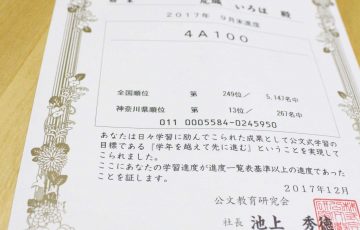 いろは 殿
2017年 9月末進度
4A100
全国順位 第 249位/ 5,147名中
神奈川県順位 第 13位/ 267名中
011 0005584-0245950
あなたは日々学習に励んでこられた成果として公文式学習の
目標である『学年を越えて先に進む』ということを実現して
こられました。
ここにあなたの学習進度が進度一覧表基準以上の進度であった
ことを証します。
2017年12月
公文教育研究会
社長 池上 秀徳